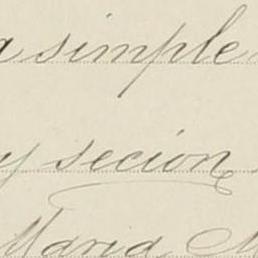 a simple
y seción
Maria